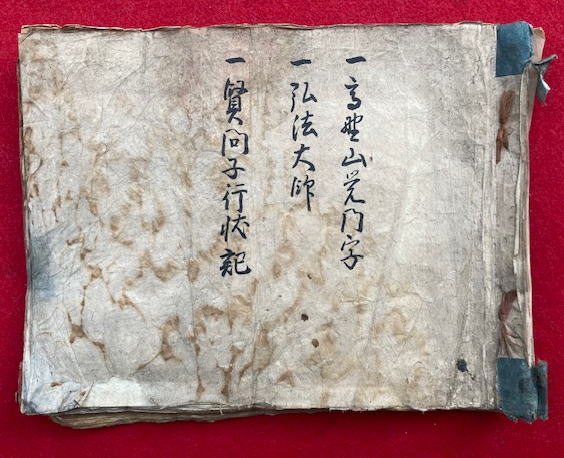 一高野山覚門字
一弘法大師
一賢問子行状記